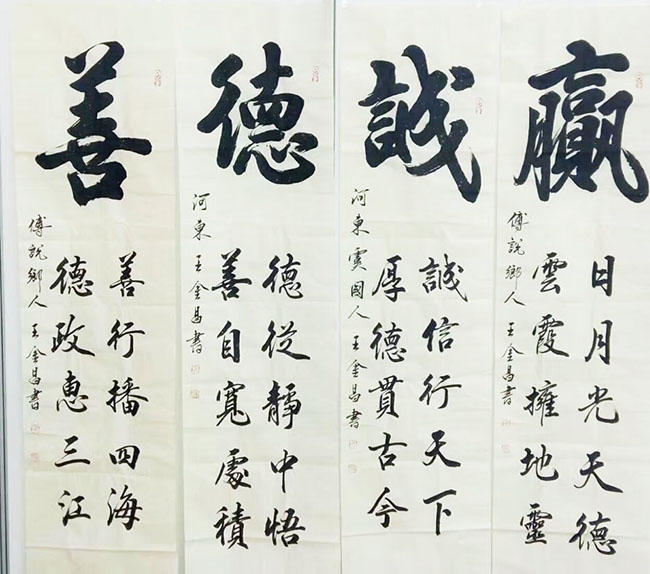 贏
日月光天德
雲霞擁地靈
傅說鄉人王金昌書
誠
誠信行天下
厚德貫古今
河東虞國人王金昌書
德
德從靜中悟
善自寬處積
河東王金昌書
善
善行播四海
德政惠三江
傅說鄉人王金昌書